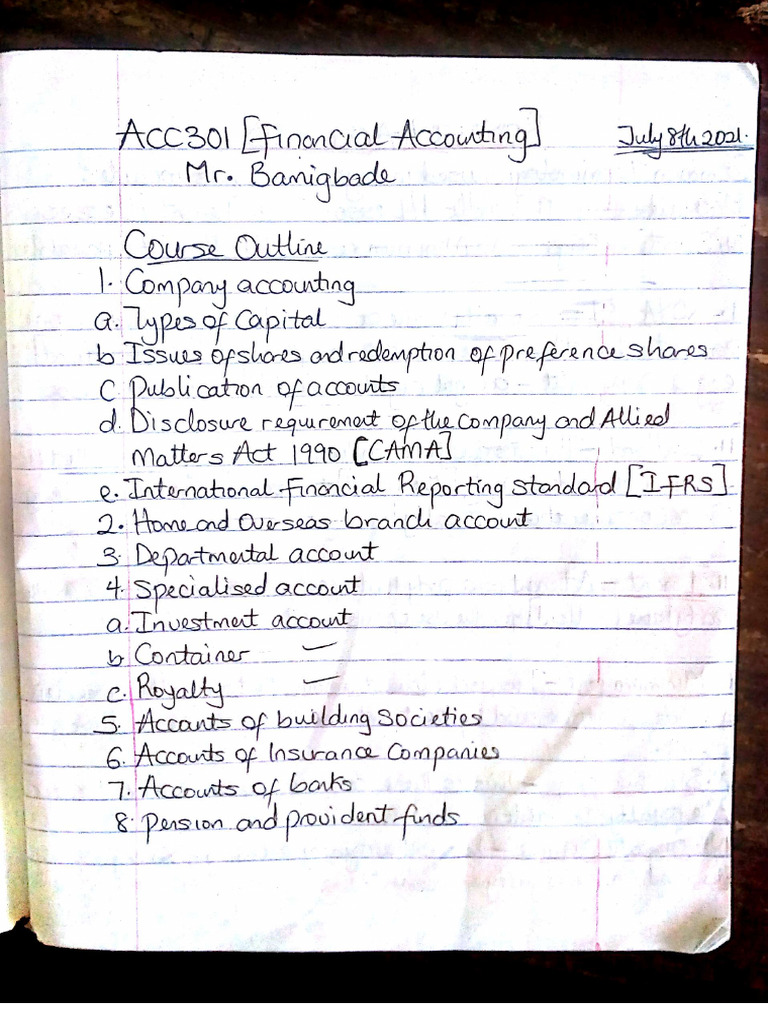 ACC301 [Financial Accounting] July 8th 2021.
Mr. Bamigbade
Course Outline
1. Company accounting
a. Types of Capital
b Issues of shares and redemption of preference shares
c Publication of accounts
d. Disclosure requirement of the Company and Allied
Matters Act 1990 [CAMA]
e. International Financial Reporting Standard [IFRS]
2. Home and Overseas branch account
3. Departmental account
4. Specialised account
a. Investment account
b. Container "
c. Royalty "
5. Accounts of building Societies
6. Accounts of Insurance Companies
7. Accounts of banks
8. Pension and provident funds